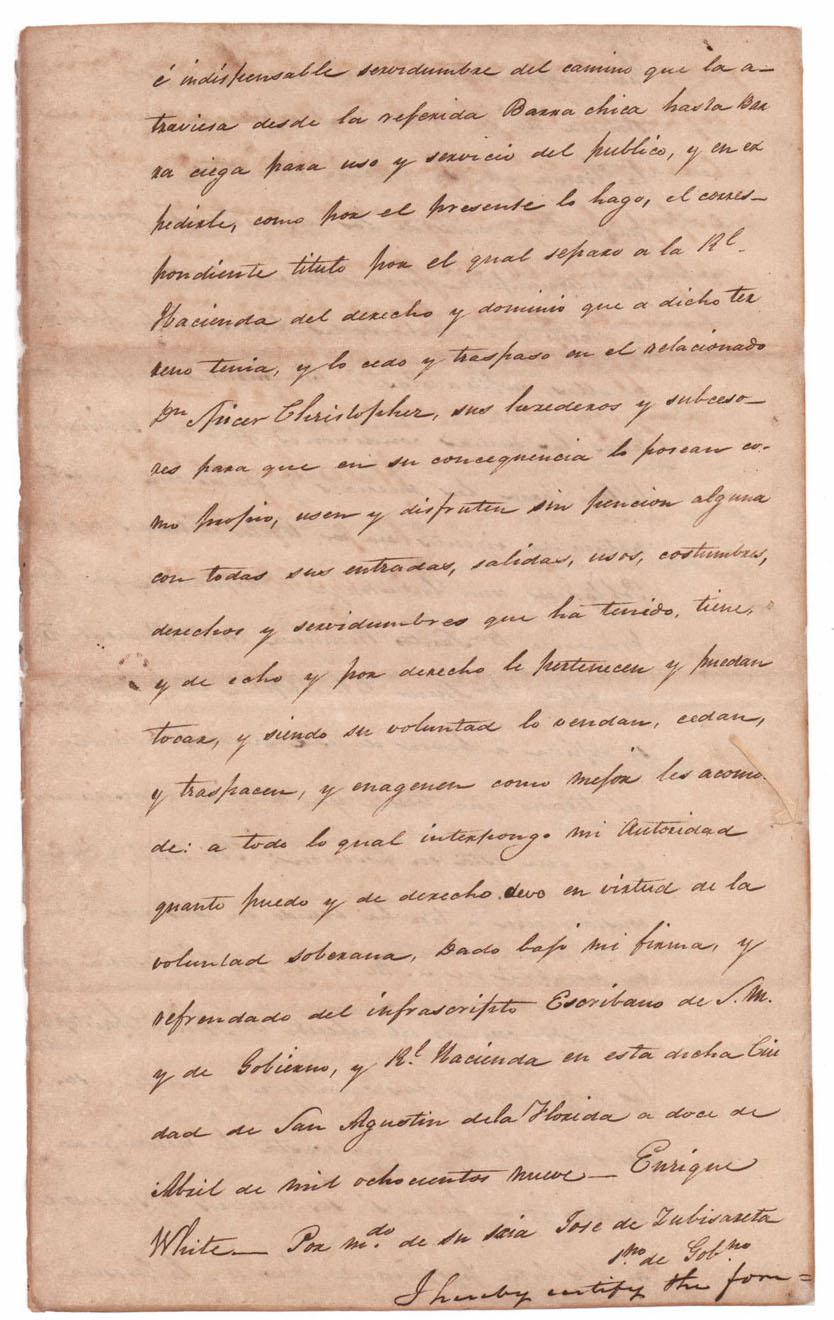 é indispensable servidumbre del camino que la a-
traviesa desde la referida Barra chica hasta Bar
ra ciega para uso y servicio del publico, y en ex
pedirle, como por el presente lo hago, el corres-
pondiente titulo por el qual separo a la Rl.
Hacienda del derecho y dominio que a dicho ter
reno tenia, y lo cedo y traspaso en el relacionado
Dn Spicer Christopher, sus herederos y subceso-
res para que en su concequencia lo posean co-
mo propio, usen y disfruten sin pencion alguna
con todas sus entradas, salidas, usos, costumbres,
derechos y servidumbres que ha tenido, tiene,
y de echo y por derecho le pertenecen y puedan
tocar, y siendo su voluntad lo vendan, cedan,
y traspacen, y enagenen como mejor les acomo
de: a todo lo qual interpongo mi Autoridad
quanto puedo y de derecho devo en virtud de la
voluntad soberana, Dado bajo mi firma, y
refrendado del infrascripto Escribano de S.M.
y de Gobierno, y Rl. Hacienda en esta dicha Ciu
dad de San Agustin dela Florida a doce de
Abril de mil ochocientos nueve — Enrique
White — Por mdo. de su sria Jose de Zubisarreta
sno. de Gobno.
I hereby certify the fore=